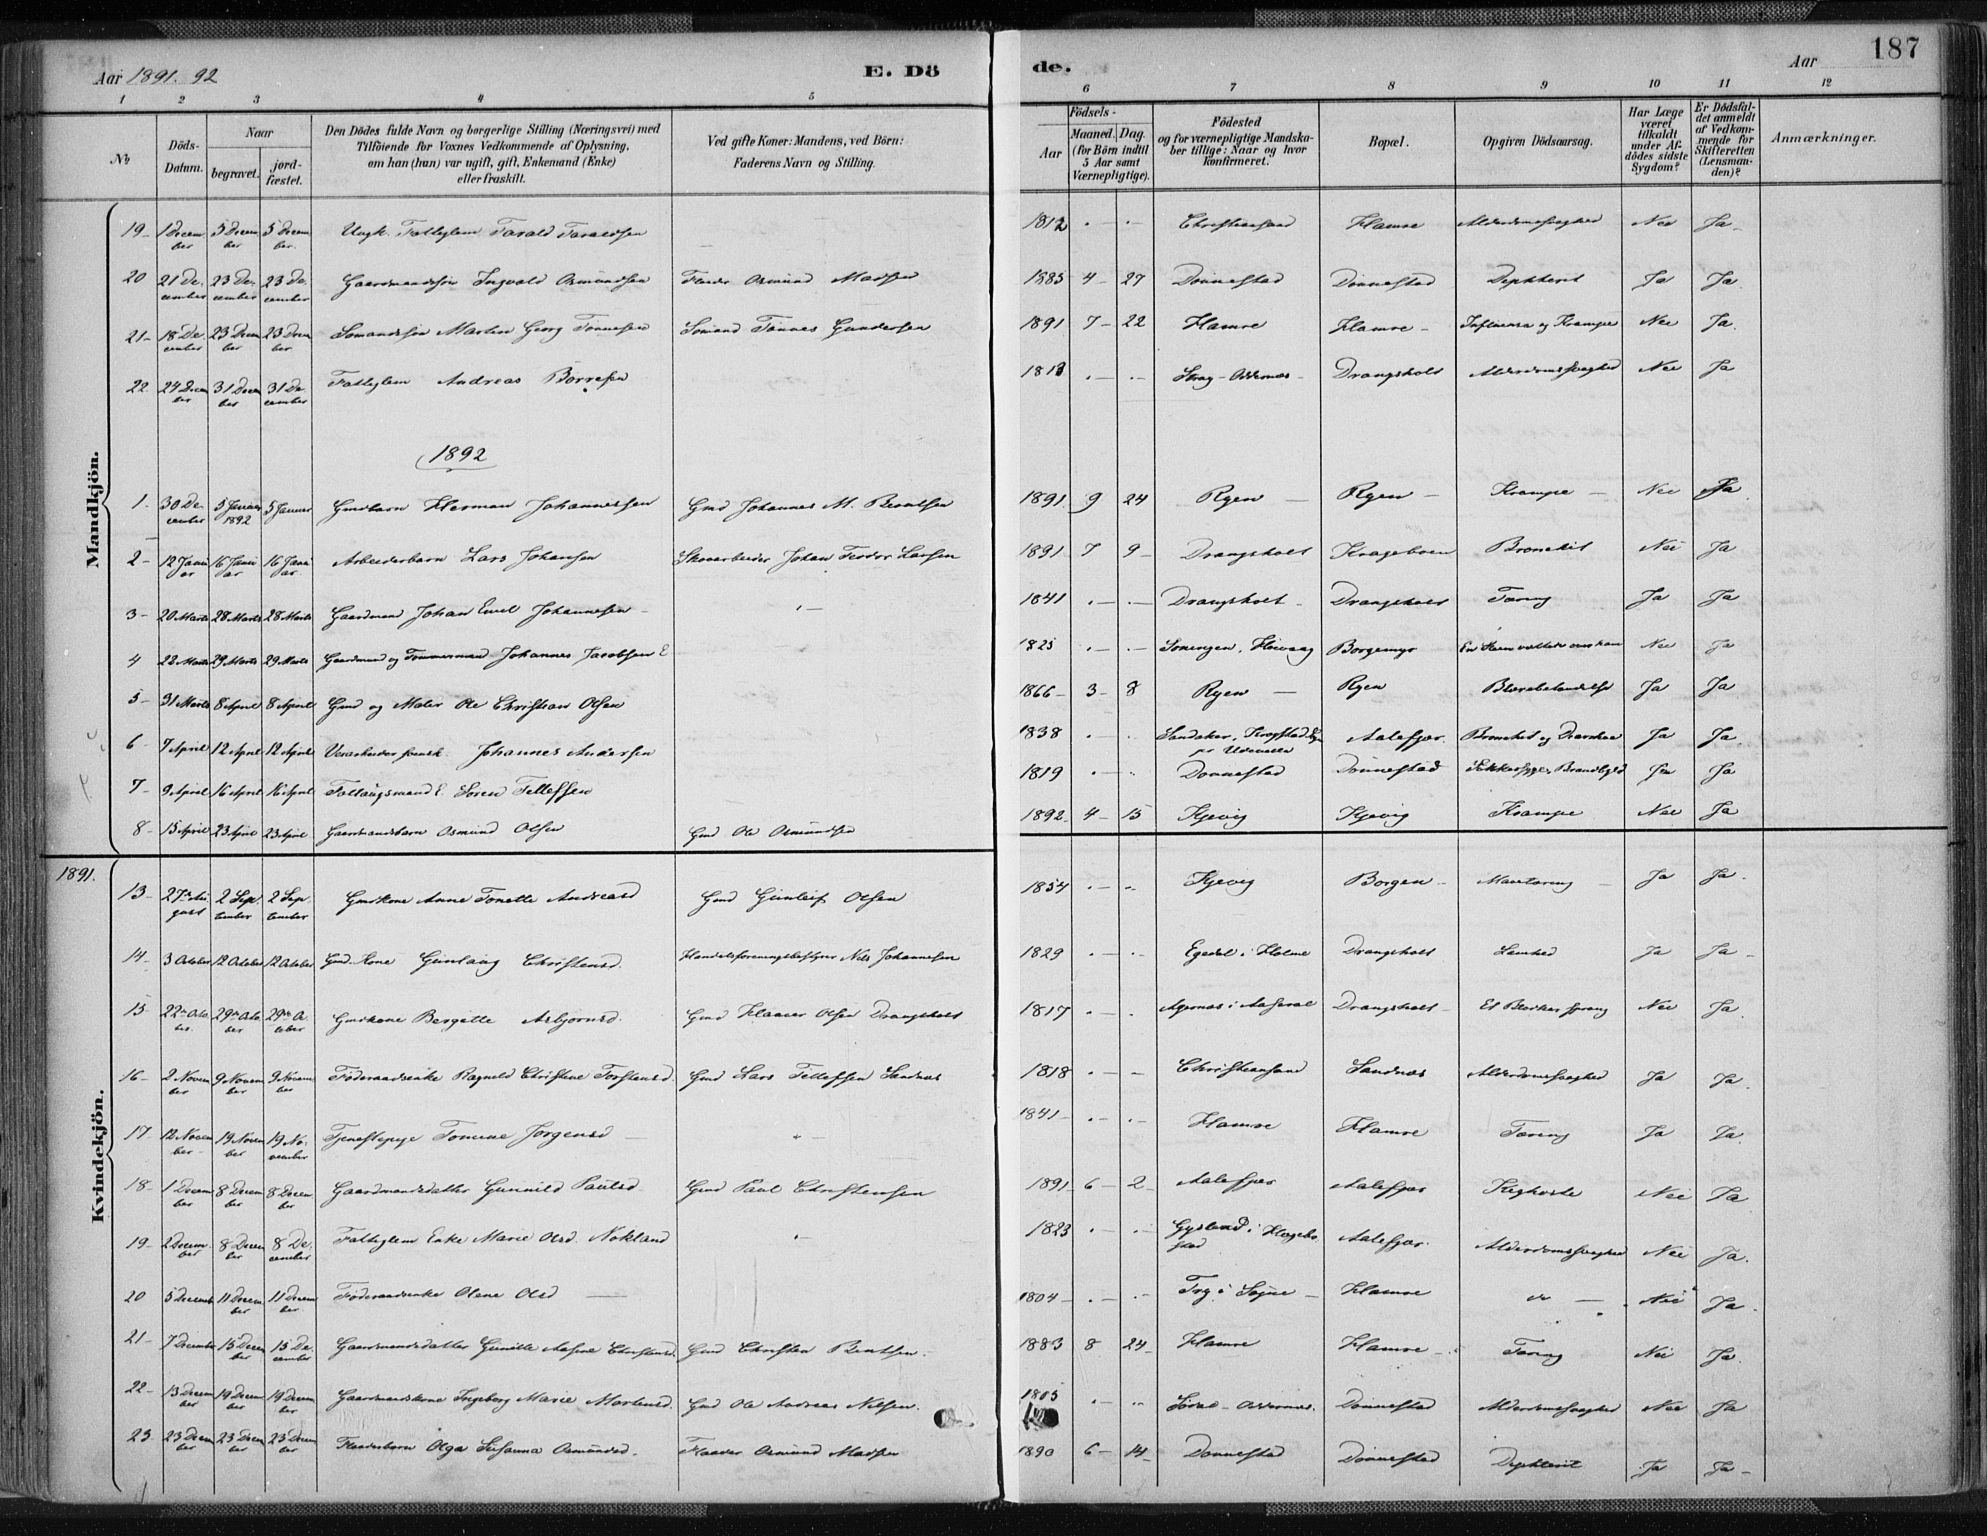 187
Aar 1891. 92
E. Dö
de.
Aar
1 2 3 4 5 6 7 8 9 10 11 12
No
Döds-Datum.
Naar
begravet.
jord-fæstet.
Den Dödes fulde Navn og borgerlige Stilling (Næringsvei) med
Tilföiende for Voxnes Vedkommende af Oplysning,
om han (hun) var ugift, gift, Enkemand (Enke)
eller fraskilt.
Ved gifte Koner: Mandens, ved Börn:
Faderens Navn og Stilling.
Födsels-
Aar
Maaned. Dag.
(for Börn indtil
5 Aar samt
Værnepligtige).
Födested
og for værnepligtige Mandska-
ber tillige: Naar og hvor
konfirmeret.
Bopæl.
Opgiven Dödsaarsag.
Har Læge
været
tilkaldt
under Af-
dödes sidste
Sygdom?
Er Dödsfal-
det anmeldt
af Vedkom-
mende for
Skifteretten
(Lensman-
den)?
Anmærkninger.
Mandkjön.
19 - 1 Decem ber 5 Decem ber 5 Decem ber. Ungk. Fattiglem Tarald Taraldsen 1812 Christianssand Hamre Alderdomssvaghed Nei Ja
20 21 De cember 23 De cember 23 De cember Gaardmandssön Ingvald Osmundsen Osmund Madsen 1885 4 27 Dönnestad Dönnestad Ja Ja
21 - 18 De cember 23 Decem ber 23 Decem ber Sömandssön Martin Georg Tönnesen Sömand Tönnes Gundersen 1891 7 - 22 Hamre Hamre - Influensa og Krampe Nei Ja.
22 24 Decem ber 31 Decem ber 31 De cember Fattiglem Andreas Börresen 1813 Oddernæs - Drangsholt Alderdomssvaghed Nei Ja
1892
1. 30 De cember 5 Januar 1892 5 Januar Gmdbarn Herman Johannessen Gmd Johannes M. Berntsen 1891 9 24 Ryen - Ryen - Krampe - Nei Ja.
2 - 12 Janu ar 16 Janu ar 16 Janu ar. Arbeiderbarn Lars Johansen Johan Teodor Larsen 1891 7 9 - Drangsholt Krageboen Bronckit Nei Ja
3 - 20 Marts 28 Marts 28 Marts Gaardmand Johan Emil Johannesen 1841 Drangsholt - Drangsholt Tæring Ja Ja
4 22 Marts 29 Marts 29 Marts Gaardmand og Tömmermand Johannes Jacobsen E 1825 Borgemyr Nei Ja
5 - 31 Marts 8 April 8 April Gmd og Maler Ole Christian Olsen 1866 - 3 - 8 Ryen - Ryen Ja Ja
6 - 7 April 12 April 12 April Johannes Andersen 1838 Sandaker, pr Udevalla Aalefjær. Bronckit og Ja Ja.
7 - 9 April 16 April 16 April E. Sören Tellefsen 1819 Dönnestad Dönnestad Ja Ja
8 - 15 April 23 April 23 April Gaardmandsbarn Osmund Olsen Gmd Ole Osmundsen 1892 4 - 15 Kjevig Kjevig Krampe Nei Ja
Kvindekjön.
1891.
13 - 27de Au gust 2 Sep tember 2 Sep tember Gmdkone Anne Tonette Andreasd Gmd Gunleif Olsen 1854 Kjevig Borgen - Ja Ja.
14 - 3 October 12 October 12 October Gmd. Kone Gunlaug Christensd. Handelsforeningsbestyrer Nils Johannesen 1829 Egedal i Holme Drangsholt Lamhed Ja Ja -
15 22de Octo ber. 29de Octo ber 29de Oc tober Gmdkone Bergitte Asbjörnsd. Gmd Olsen Drangsholt 1817 i Aaseral Drangsholt - Et Nei Ja.
16 - 2 Novem ber 9 Novem ber 9 Novem ber Föderaadsenke Ragnild Christine Torstensd. Gmd Lars Tellefsen Sandnæs 1818 Christianssand Sandnæs Alderdomssvaghed Ja Ja.
17 - 12 Novem ber - 19 Novem ber 19 No vember Tjenestepige Tomine Jörgensd 1841 - Hamre Hamre Tæring Ja Ja.
18 - 1 Decem ber 8 Decem ber 8 Decem ber Gaardmandsdatter Gunnild Paulsd Gmd Paul Christensen 1891 6 - 2 - Aalefjær Aalefjær Kighoste Nei Ja
19 - 2 Decem ber 8 Decem ber 8 De cember Fattiglem Enke Marie Olsd. Nökland 1823 Gysland i Hægebo stad Aalefjær. Alderdomssvaghed Nei Ja.
20 5 December 11 Decem ber 11 Decem ber Föderaadsenke Olene Olsd 1804 - Try i Sögne - Hamre Nei Ja.
21 - 7 December 15 Decem ber 15 De cember Gaardmandsdatter Gunille Aasne Christensd. Gmd Christen Berntsen. 1883 8 24 - Hamre Hamre - Tæring Nei Ja.
22 - 13 Decem ber 19 Decem ber 19 Decem ber Gaardmandskone Ingeborg Marie Mortensd. Gmd Ole Andreas Nilsen. 1805 Oddernæs. Dönnestad Alderdomssvaghed Nei Ja
23 - 23 Decem ber 23 Decem ber 23 Decem ber Olga Susanna Osmundsd. Osmund Madsen 1890 6 - 14 - Dönnestad Dönnestad Ja Ja -